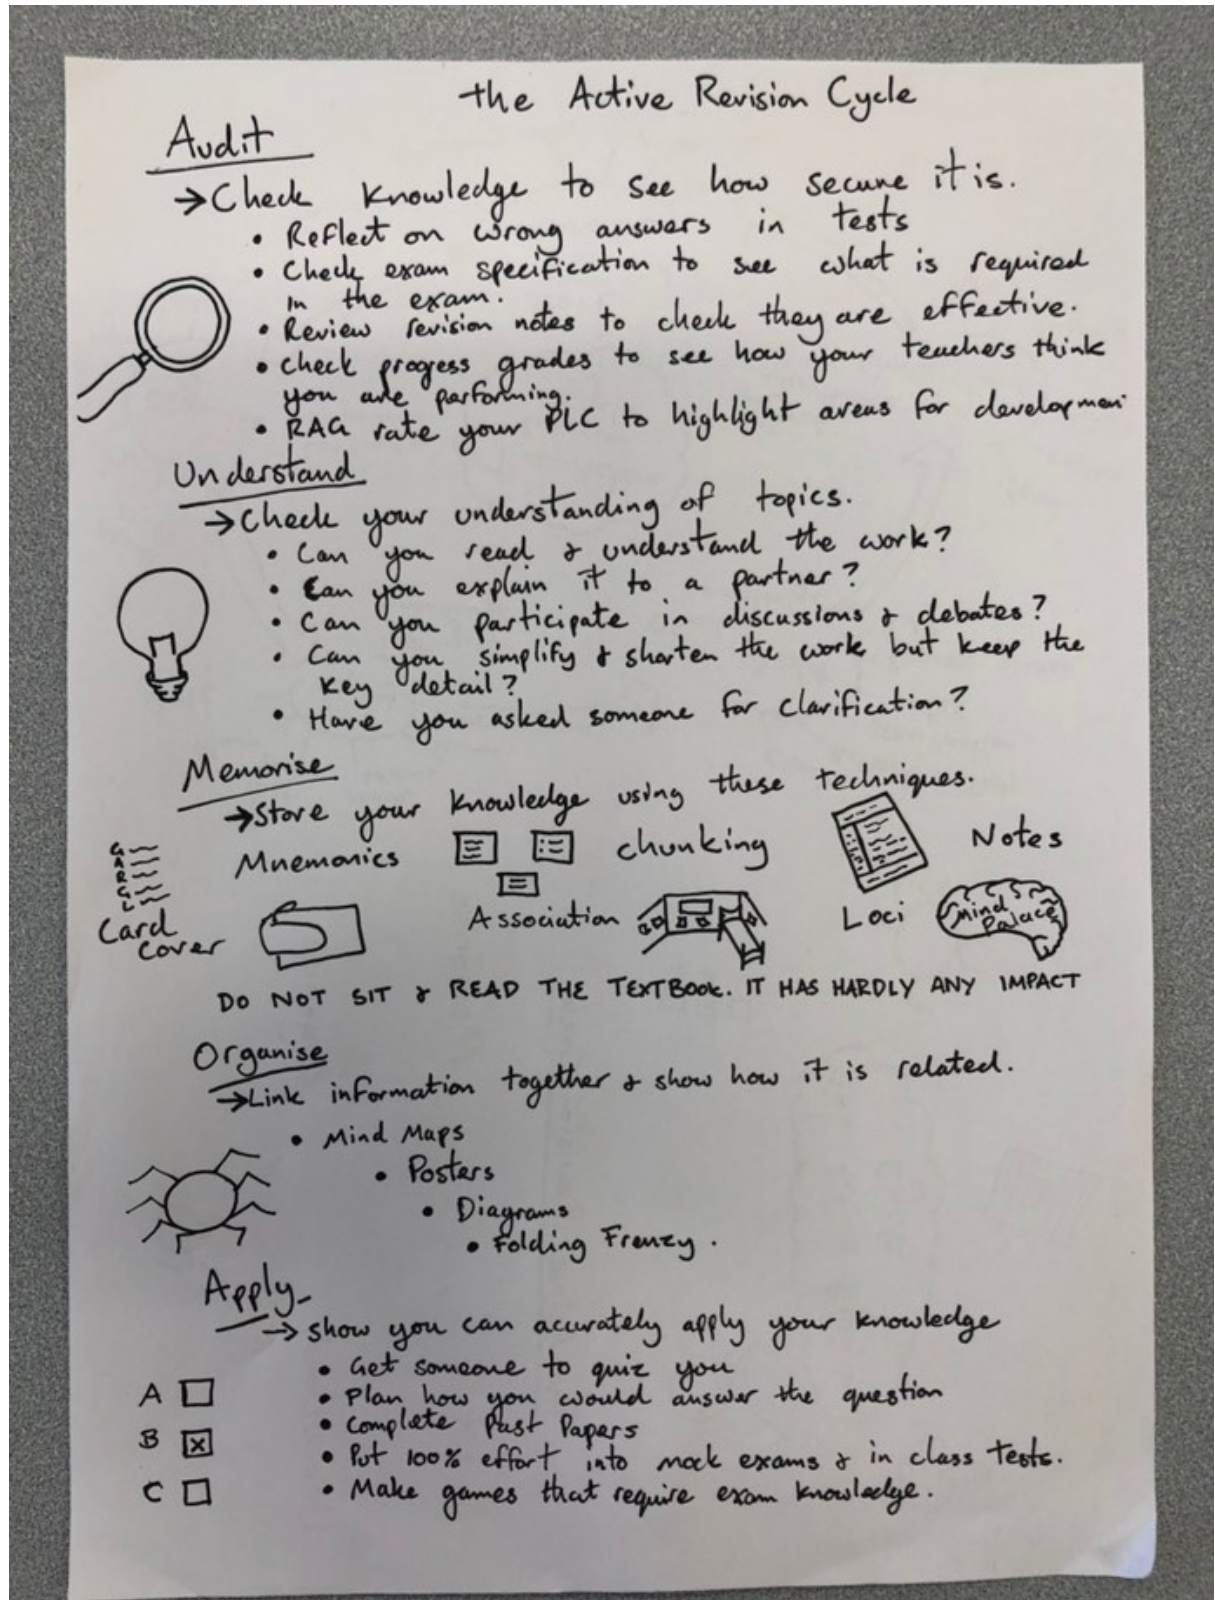 the Active Revision Cycle
Audit
→ Check knowledge to see how secure it is.
• Reflect on wrong answers in tests
• Check exam specification to see what is required
in the exam.
• Review revision notes to check they are effective.
• Check progress grades to see how your teachers think
you are performing.
• RAG rate your PLC to highlight areas for developmen
Understand
→ Check your understanding of topics.
• Can you read & understand the work?
• Can you explain it to a partner?
• Can you participate in discussions & debates?
• Can you simplify & shorten the work but keep the
key detail?
• Have you asked someone for clarification?
Memorise
→ Store your knowledge using these techniques.
G
A
R
G
L
Mnemonics
chunking
Notes
Card
Cover
Association
Loci
Mind
Palace
DO NOT SIT & READ THE TEXTBOOK. IT HAS HARDLY ANY IMPACT
Organise
→ Link information together & show how it is related.
• Mind Maps
• Posters
• Diagrams
• Folding Frenzy.
Apply
→ show you can accurately apply your knowledge
• Get someone to quiz you
A
• Plan how you would answer the question
• Complete Past Papers
B
• Put 100% effort into mock exams & in class tests.
C
• Make games that require exam knowledge.